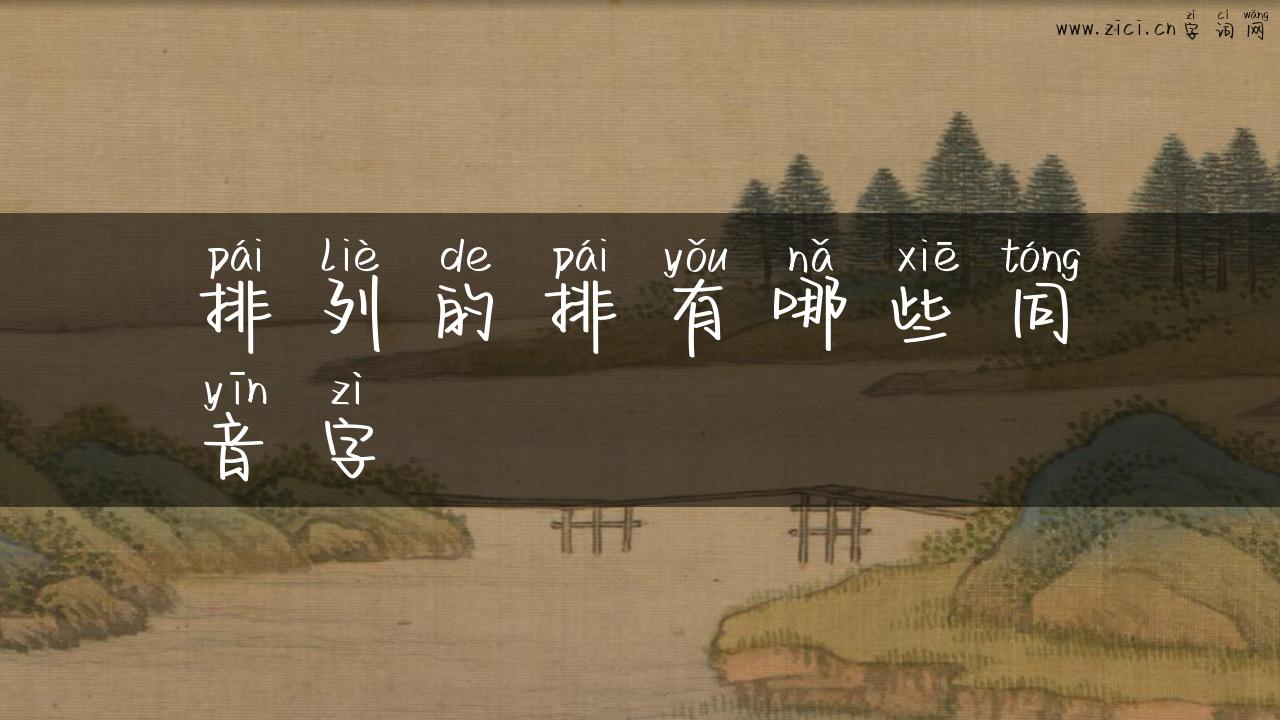 zì cí wǎng
www.zici.cn 字词网
pái liè de pái yǒu nǎ xiē tóng
排列的排有哪些同
yīn zì
音字